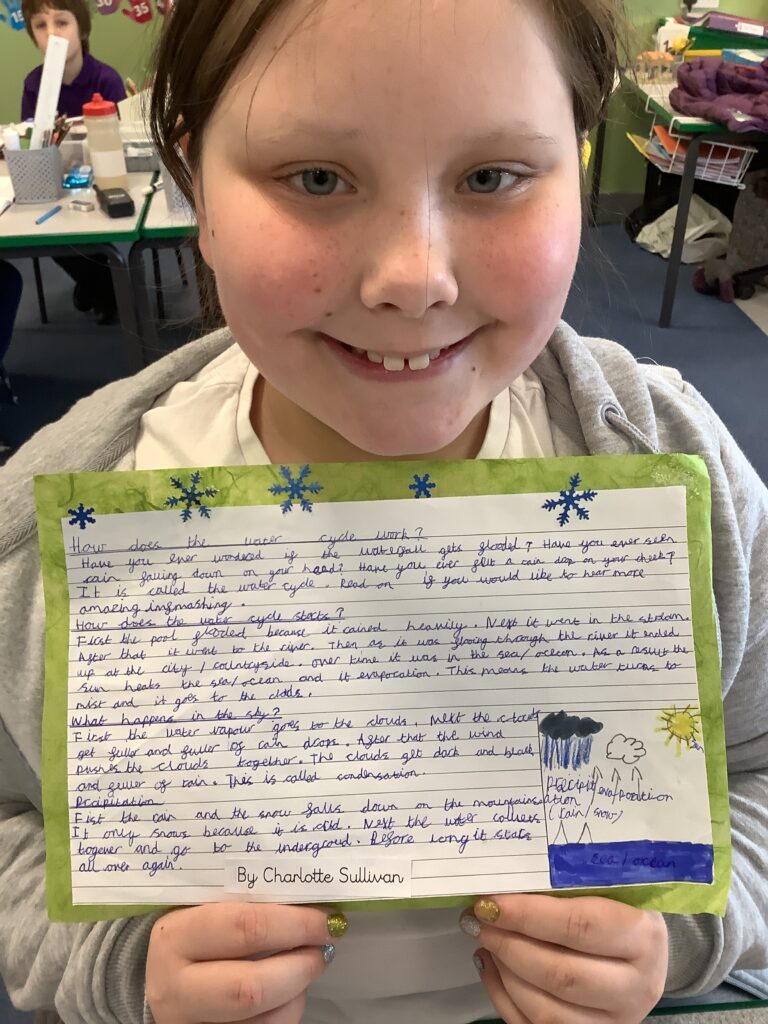 How does the water cycle work?
Have you ever wondred if the waterfall gets flooded? Have you ever seen
rain falling down on your head? Have you ever felt a rain drop on your cheek?
It is called the water cycle. Read on if you would like to hear more
amazing
How does the water cycle starts?
First the pool flooded because it rained heavily. Next it went in the
After that it went to the river. Then as it was flowing through the river it ended
up at the city / countryside. over time it was in the sea/ocean. As a result the
sun heats the sea/ocean and it evaporation. This means the water turns to
mist and it goes to the
What happens in the sky?
First the water vapour goes to the clouds. Next the clouds
get fuller and fuller of rain drops. After that the wind
pushes the clouds together. The clouds get dark and black
and fuller of rain. This is called condensation.
Prcipitation
First the rain and the snow falls down on the mountains.
It only snows because it is cold. Next the water collects
togever and go to the Before long it starts
all over again.
evaporation
(rain/snow)
sea/ocean
By Charlotte Sullivan
35